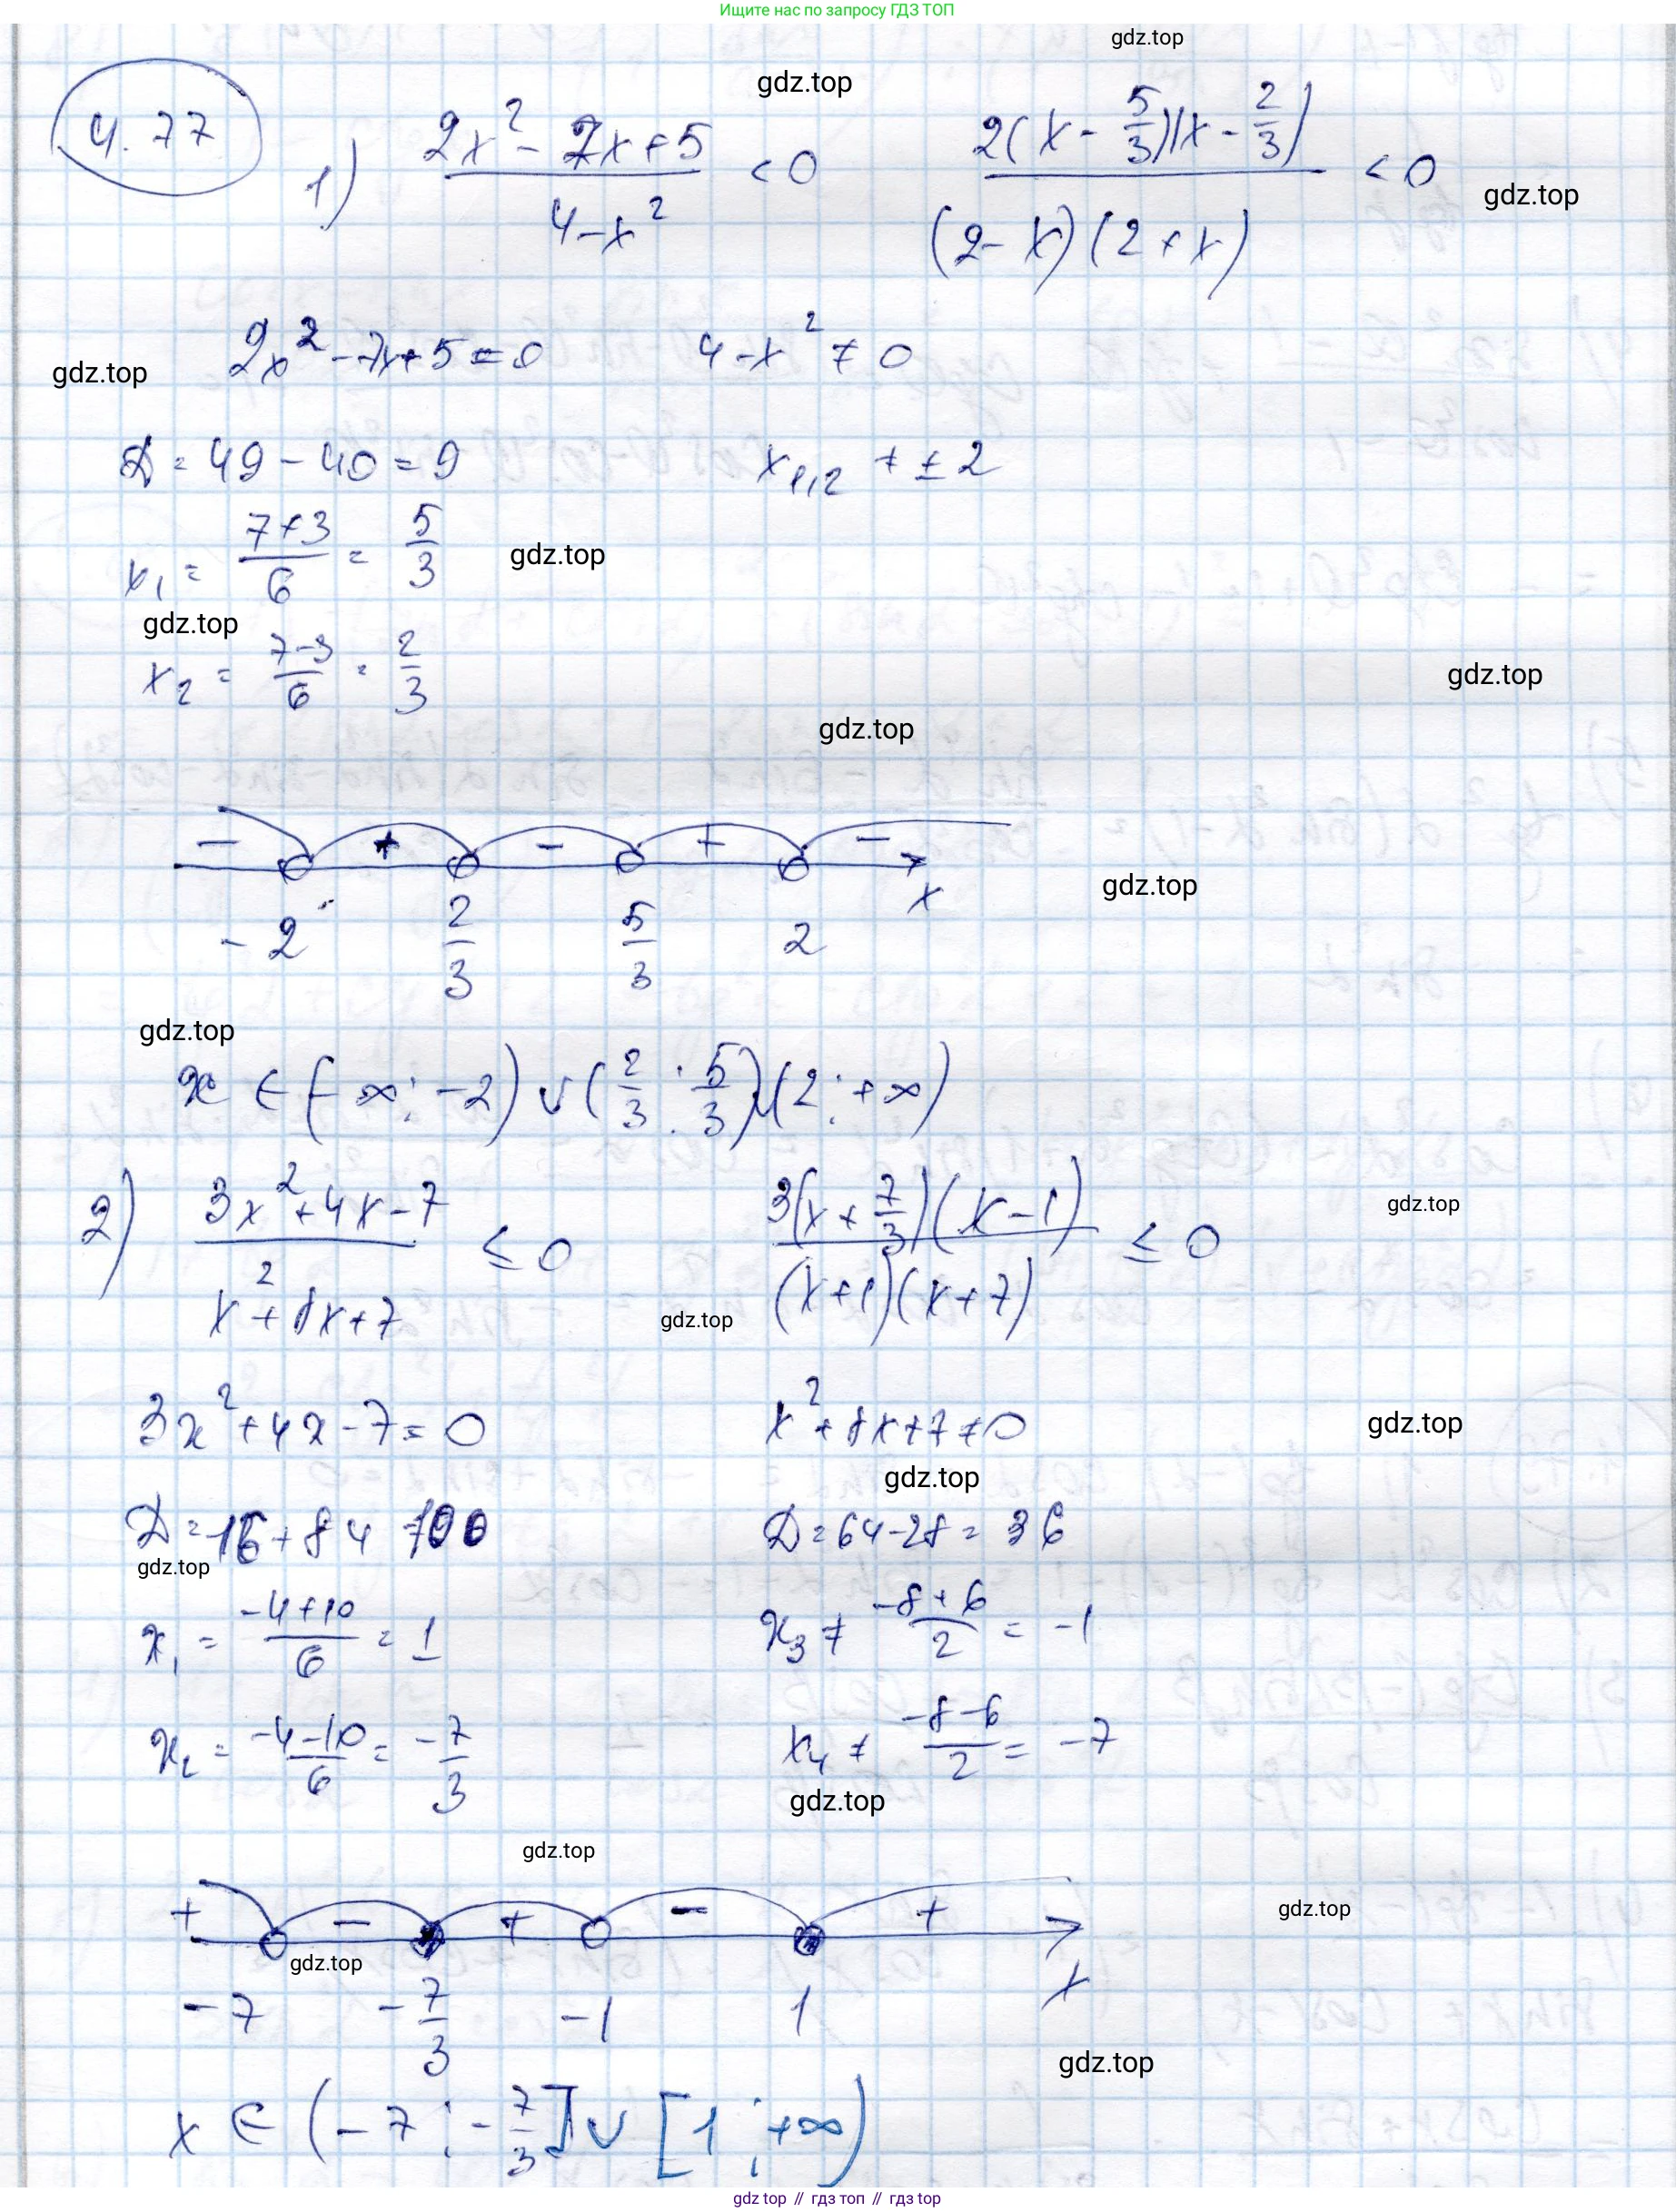 Ищите нас по запросу ГДЗ ТОП
gdz.top
gdz.top
4.77
1) (2x² - 7x + 5)/(4 - x²) < 0    2(x - 5/3)(x - 2/3)/((2 - x)(2 + x)) < 0
gdz.top
2x² - 7x + 5 = 0    4 - x² ≠ 0
gdz.top
D = 49 - 40 = 9    x₁,₂ ≠ ± 2
x₁ = (7+3)/6 = 5/3
gdz.top
gdz.top
x₂ = (7-3)/6 = 2/3
gdz.top
gdz.top
− + − + −
x
gdz.top
-2    2/3    5/3    2
gdz.top
x ∈ (-∞; -2) ∪ (2/3; 5/3) ∪ (2; +∞)
2) (3x² + 4x - 7)/(x² + 8x + 7) ≤ 0    3(x + 7/3)(x - 1)/((x+1)(x+7)) ≤ 0
gdz.top
gdz.top
3x² + 4x - 7 = 0    x² + 8x + 7 ≠ 0
gdz.top
gdz.top
D = 16 + 84 = 100    D = 64 - 28 = 36
gdz.top
x₁ = (-4+10)/6 = 1    x₃ ≠ (-8+6)/2 = -1
x₂ = (-4-10)/6 = -7/3    x₄ ≠ (-8-6)/2 = -7
gdz.top
gdz.top
+ − + − +
gdz.top
gdz.top
x
-7    -7/3    -1    1
gdz.top
x ∈ (-7; -7/3] ∪ [1; +∞)
gdz top // гдз топ // gdz.top